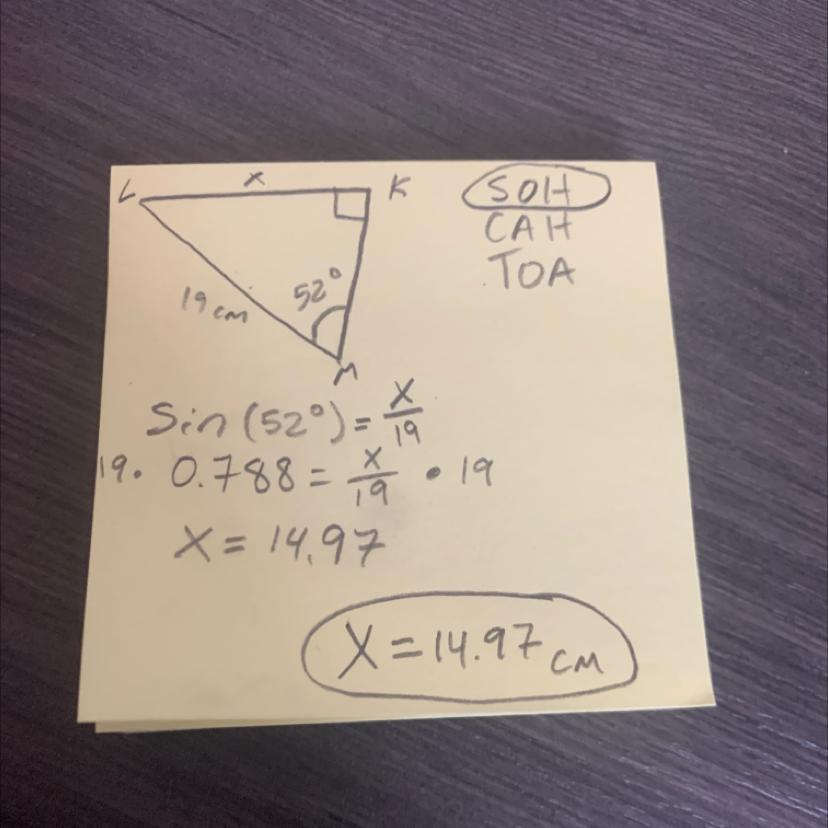 L x K
19 cm 52°
M
SOH
CAH
TOA
Sin (52°) = x/19
19 · 0.788 = x/19 · 19
X = 14.97
X = 14.97 cm